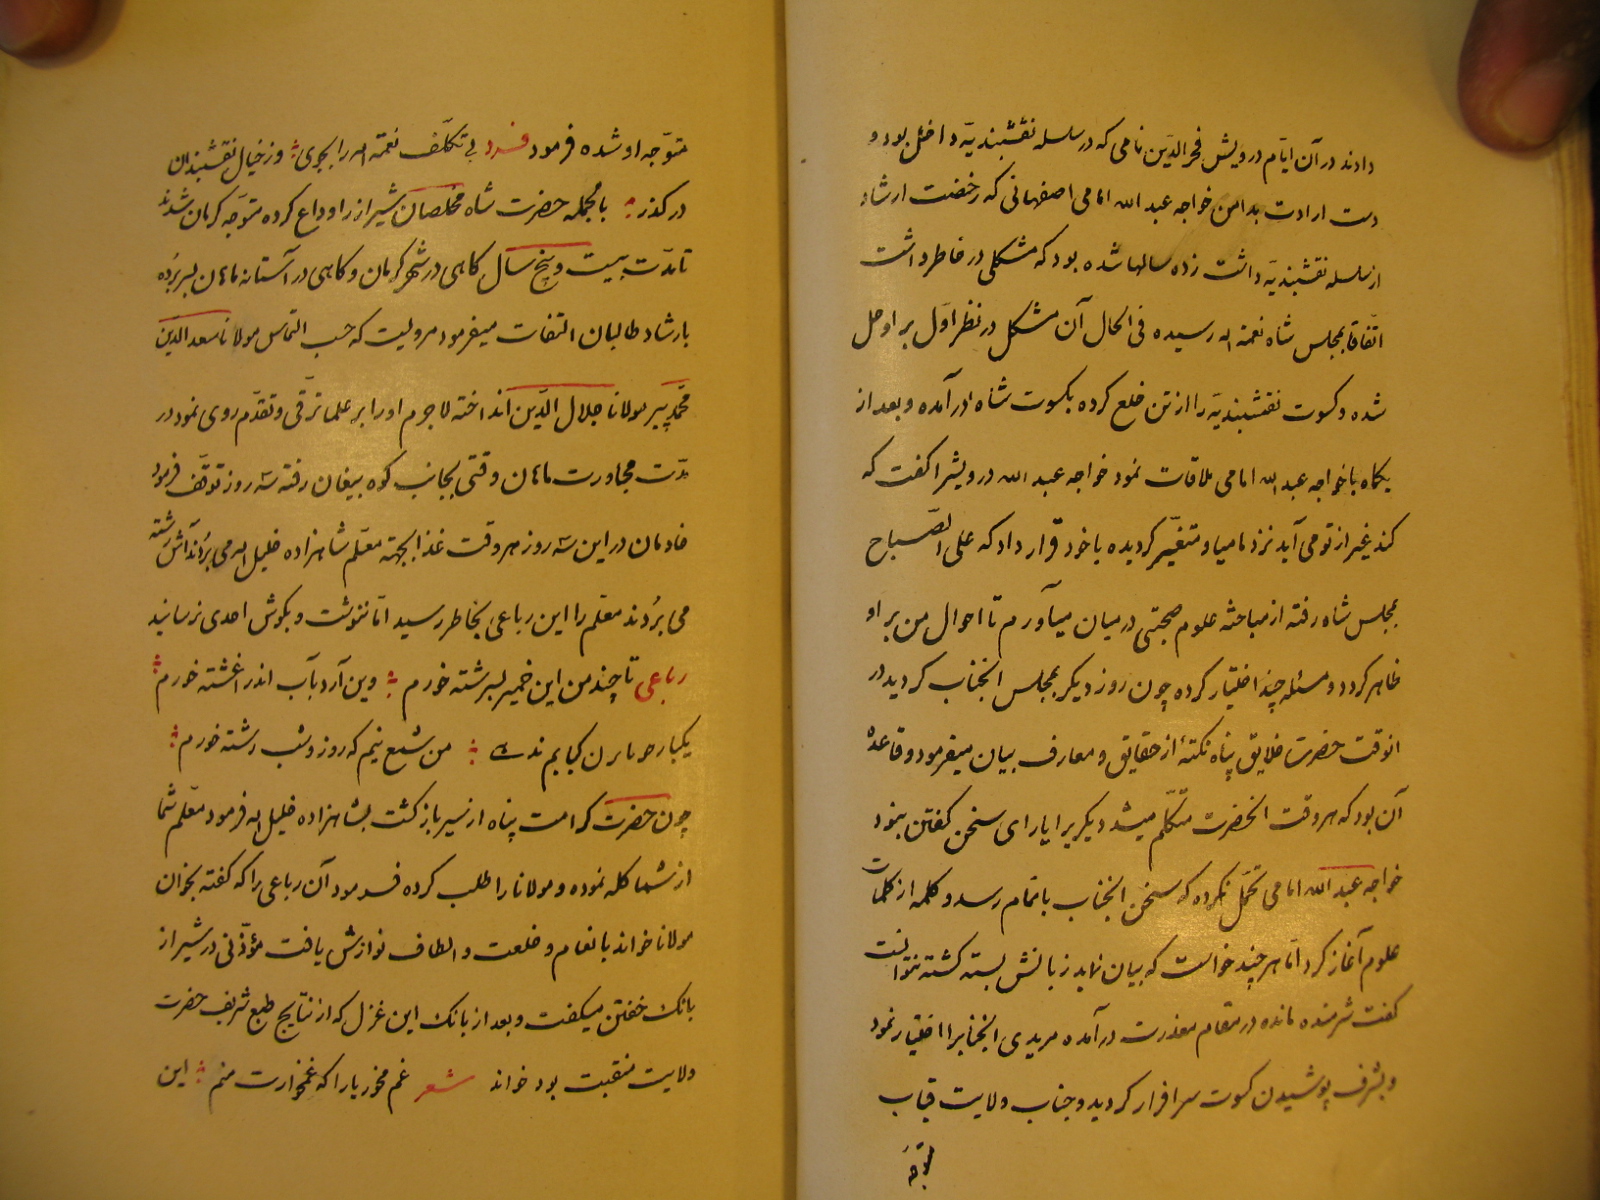 دادند در آن ایّام درویش فخر الدّین نامی که در سلسله نقشبندیّه داخل بود و
دست ارادت بدامن خواجه عبد الله امامی اصفهانی که رخصت ارشاد
از سلسله نقشبندیّه داشت زده سالها شده بود که مشکلی در خاطر داشت
اتّفاقا بمجلس شاه نعمة اله رسیده فی الحال آن مشکل در نظر اوّل بر او حل
شده و کسوت نقشبندیّه را از تن خلع کرده بکسوت شاه در آمده و بعد از
یکماه با خواجه عبد الله امامی ملاقات نمود خواجه عبد الله درویشرا گفت که
کند غیر از تو می آید نزد ما میا و متغیّر گردیده با خود قرار داد که علی الصّباح
بمجلس شاه رفته از مباحثه علوم صحبتی در میان میآورم تا احوال من بر او
ظاهر گردد و مسئله چند اختیار کرده چون روز دیگر بمجلس انجناب گردید در
انوقت حضرت خلایق پناه نکتهٔ از حقایق و معارف بیان میفرمود و قاعده
آن بود که هر وقت انحضرت متکلّم میشد دیگریرا یارای سخن گفتن نبود
خواجه عبد الله امامی تحمّل نکرده که سخن انجناب باتمام رسد و کلمه از کلمات
علوم آغاز کرد امّا هر چند خواست که بیان نماید زبانش بسته گشته نتوانست
گفت شرمنده مانده در مقام معذرت در آمده مریدی انجنابرا اختیار نمود
و بشرف پوشیدن کسوت سرافراز گردید و جناب ولایت قباب
متوجّه
متوجّه او شده فرمود فرد بی تکلّف نعمة اله را بجوی وز خیال نقشبندان
در گذر بالجمله حضرت شاه مخلصان شیراز را وداع کرده متوجّه کرمان شدند
تا مدّت بیست و پنج سال گاهی در شهر کرمان و گاهی در آستانه ماهان بسر برده
بارشاد طالبان التفات میفرمود مرویست که حسب التماس مولانا سعد الدّین
محمّد پیر مولانا جلال الدّین انداخته لاجرم او را بر علما ترقّی و تقدّم روی نمود در
مدّت مجاورت ماهان وقتی بجانب کوه بیغان رفته سه روز توقّف فرمود
خادمان در این سه روز هر وقت غذا بجهته معلّم شاهزاده خلیل اله می بردند آش رشته
می بردند معلّم را این رباعی بخاطر رسید امّا ننوشت و بگوش احدی نرسانید
رباعی تا چند من این خمیر بسرشته خورم وین آرد بآب اندر اغشته خورم
یکبار من شمع نیم که روز و شب رشته خورم
چون حضرت کرامت پناه از سیر بازگشت بشاهزاده خلیل اله فرمود معلّم شما
از شما گله نموده و مولانا را طلب کرده فرمود آن رباعی را که گفته بخوان
مولانا خواند بانعام و خلعت و الطاف نوازش یافت مؤذّنی در شیراز
بانک خفتن میگفت و بعد از بانک این غزل که از نتایج طبع شریف حضرت
ولایت منقبت بود خواند شعر غم مخور یارا که غمخوارت منم این